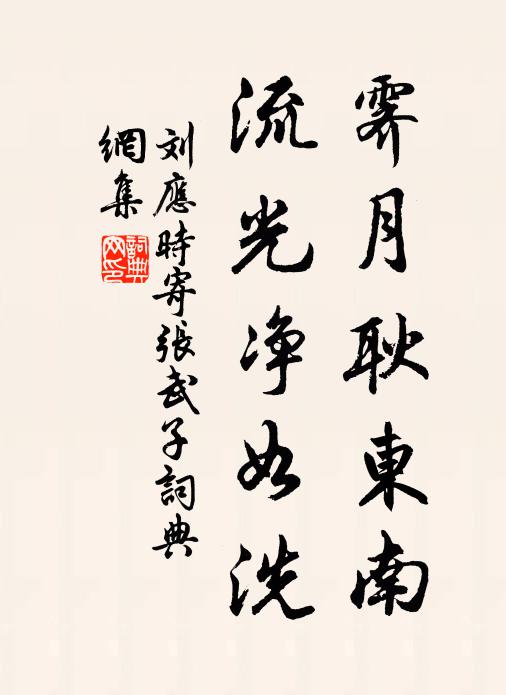 霽月耿東南
流光净如洗
刘應時寄張武子詞典
網集
詞典网印